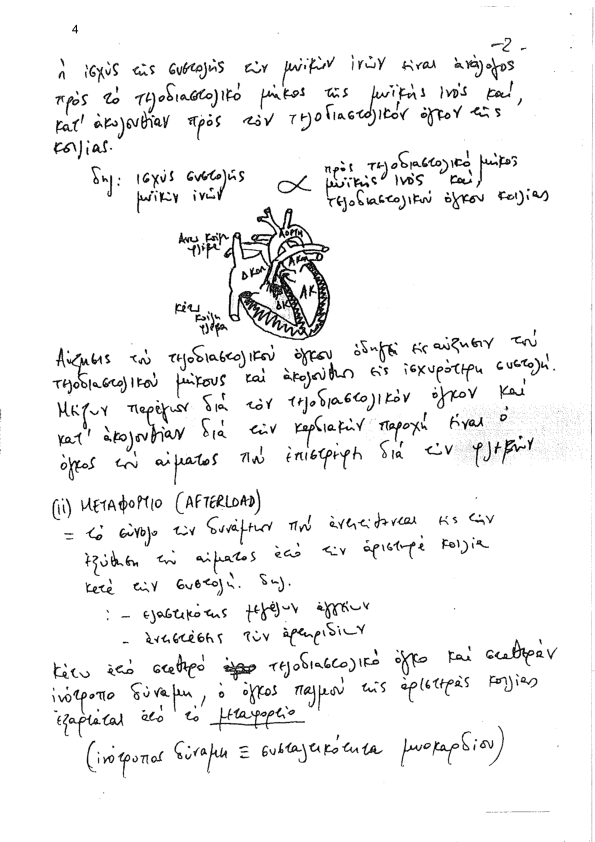 4
-2-
ἡ ἰσχύς τῆς συστολῆς τῶν μυϊκῶν ἰνῶν εἶναι ἀνάλογος
πρός τό τελοδιαστολικό μῆκος τῆς μυϊκῆς ἰνός καί,
κατ' ἀκολουθίαν πρός τόν τελοδιαστολικόν ὄγκον τῆς
κοιλίας.
δηλ: ἰσχύς συστολῆς μυϊκῶν ἰνῶν ∝ πρός τελοδιαστολικό μῆκος μυϊκῆς ἰνός καί, τελοδιαστολικοῦ ὄγκου κοιλίας
ΑΟΡΤΗ
Ἄνω κοίλη
φλέβα
Δ ΚΟΛ
Α ΚΟΛ
ΑΚ
ΔΚ
Κάτω
κοίλη
φλέβα
Αὔξησις τοῦ τελοδιαστολικοῦ ὄγκου ὁδηγεῖ εἰς αὔξησιν τοῦ
τελοδιαστολικοῦ μήκους καί ἀκολούθως εἰς ἰσχυρότερη συστολή.
Μείζων παράγων διά τόν τελοδιαστολικόν ὄγκον καί
κατ' ἀκολουθίαν διά τήν καρδιακήν παροχή εἶναι ὁ
ὄγκος τοῦ αἵματος πού ἐπιστρέφει διά τῶν φλεβῶν
(ii) ΜΕΤΑΦΟΡΤΙΟ (AFTERLOAD)
= τό σύνολο τῶν δυνάμεων πού ἀντιτίθενται εἰς τήν
ἐξώθηση τοῦ αἵματος ἀπό τήν ἀριστερά κοιλία
κατά τήν συστολή. δηλ.
: - ελαστικότης μεγάλων ἀγγείων
- ἀντιστάσης τῶν ἀρτηριδίων
Κάτω ἀπό σταθερό τελοδιαστολικό ὄγκο καί σταθεράν
ἰνότροπο δύναμη, ὁ ὄγκος παλμοῦ τῆς ἀριστερᾶς κοιλίας
ἐξαρτᾶται ἀπό τό μεταφορτίο
(ἰνότροπος δύναμη ≡ συσταλτικότητα μυοκαρδίου)